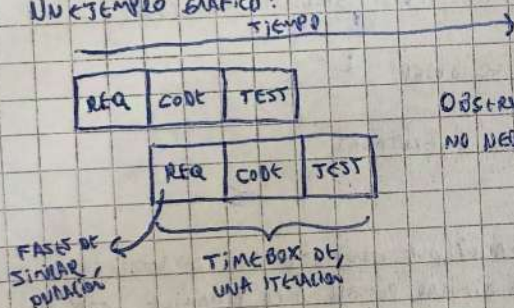 UN EJEMPLO GRÁFICO:
TIEMPO
REQ CODE TEST
OBSER
NO NE
REQ CODE TEST
FASES DE
SIMILAR
DURACIÓN
TIMEBOX DE
UNA ITERACIÓN